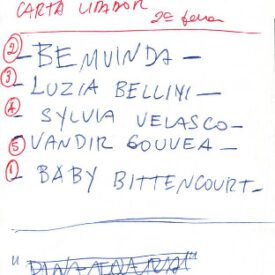 CARTA
2ª feira
② - BEMVINDA -
③ - LUZIA BELLINI -
④ SYLVIA VELASCO -
⑤ VANDIR GOUVEA -
① BABY BITTENCOURT -